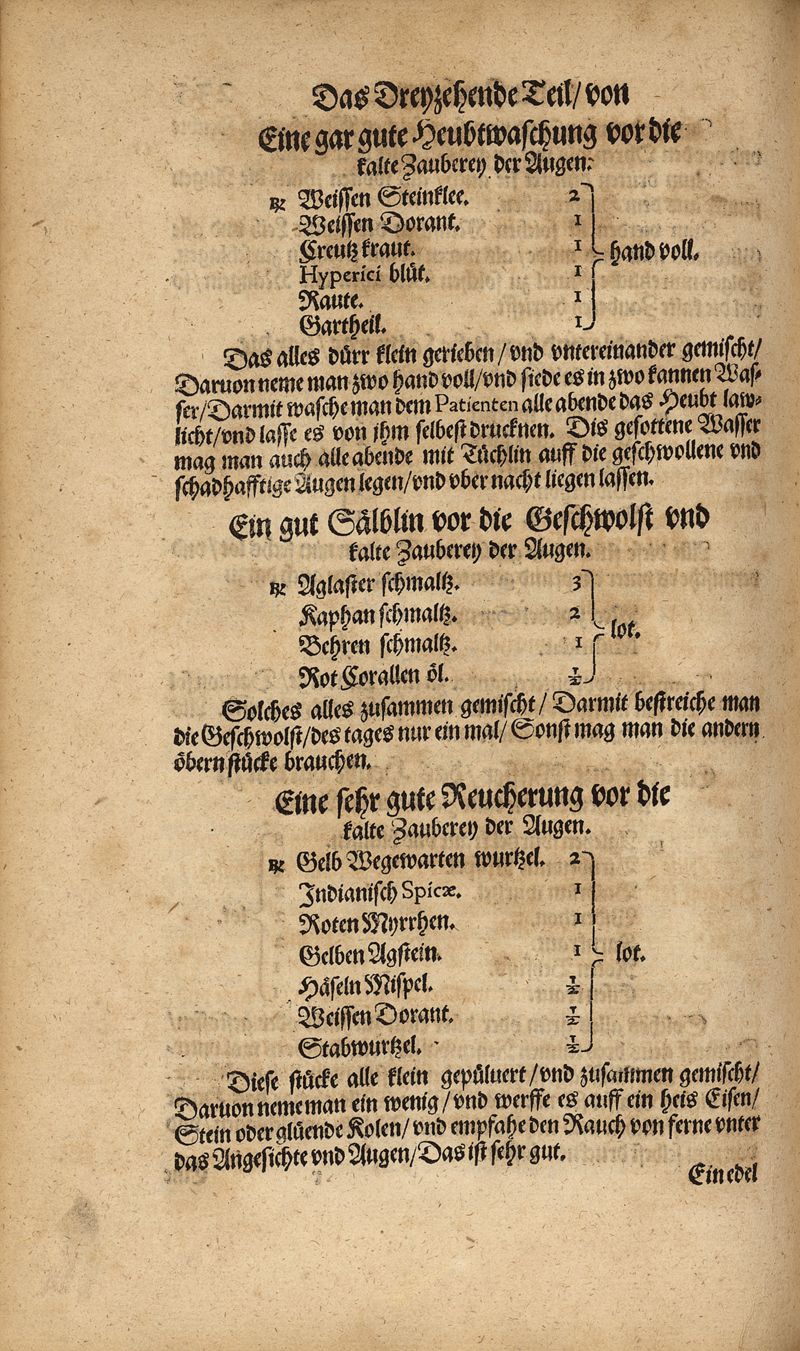 Das Dreyzehende Teil/von
Eine gar gute Heubtwaschung vor die
kalte Zauberey der Augen:
℞ Weissen Steinklee. 2
Weissen Dorant. 1
Creutzkraut. 1 hand voll.
Hyperici blüt. 1
Raute. 1
Gartheil. 1
Das alles dürr klein gerieben/vnd vntereinander gemischt/
Daruon neme man zwo hand voll/vnd siede es in zwo kannen Was-
ser/Darmit wasche man dem Patienten alle abende das Heubt law-
licht/vnd lasse es von jhm selbest drucknen. Dis gesottene Wasser
mag man auch alle abende mit Tüchlin auff die geschwollene vnd
schadhafftige Augen legen/vnd vber nacht liegen lassen.
Ein gut Sälblin vor die Geschwolst vnd
kalte Zauberey der Augen.
℞ Aglaster schmaltz. 3
Kaphan schmaltz. 2
lot.
Behren schmaltz. 1
Rot Corallen öl. ½
Solches alles zusammen gemischt/Darmit bestreiche man
die Geschwolst/des tages nur ein mal/Sonst mag man die andern
öbern stücke brauchen.
Eine sehr gute Reucherung vor die
kalte Zauberey der Augen.
℞ Gelb Wegewarten wurtzel. 2
Indianisch Spicæ. 1
Roten Myrrhen. 1
Gelben Agstein. 1 lot.
Häseln Mispel. ½
Weissen Dorant. ½
Stabwurtzel. ½
Diese stücke alle klein gepüluert/vnd zusammen gemischt/
Daruon neme man ein wenig/vnd werffe es auff ein heis Eisen/
Stein oder glüende Kolen/vnd empfahe den Rauch von ferne vnter
das Angesichte vnd Augen/Das ist sehr gut.
Ein edel